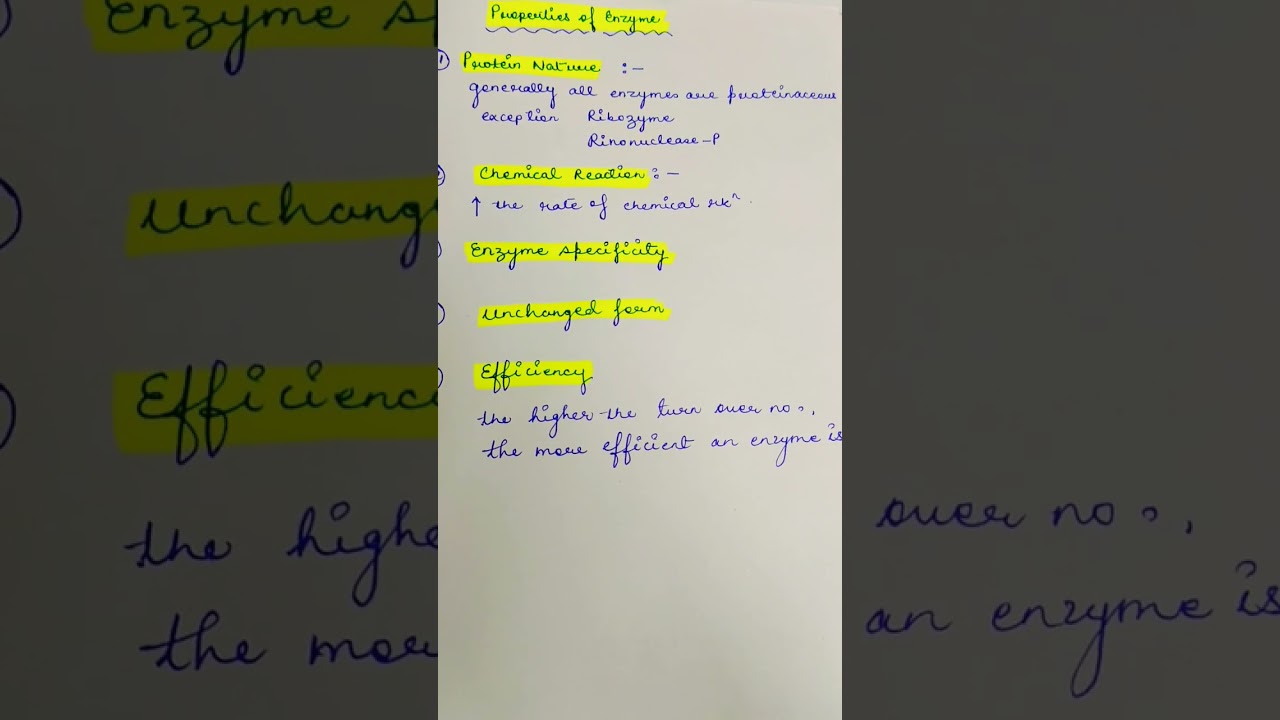 Properties of Enzyme
1) Protein Nature :-
generally all enzymes are proteinaceous
exception Ribozyme
Rinonuclease-P
2) Chemical Reaction :-
↑ the rate of chemical rxⁿ.
) Enzyme specificity
) Unchanged form
) Efficiency
the higher the turn over no.,
the more efficient an enzyme is